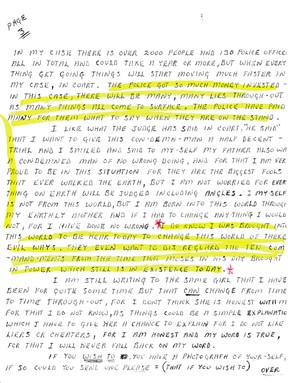 PAGE
3
IN MY CASE THERE IS OVER 2000 PEOPLE AND 130 POLICE OFFICE
ALL IN TOTAL AND COULD TAKE A YEAR OR MORE, BUT WHEN EVERY
THING GET GOING THINGS WILL START MOVING MUCH FASTER IN
MY CASE, IN COURT. THE POLICE GOT SO MUCH MONEY INVESTED
IN THIS CASE, THERE WILL BE MANY, MANY LIES THROUGH-OUT
AS MANY THINGS ALL COME TO SURFACE. THE POLICE HAVE PAID
MANY FOR THEM WHAT TO SAY WHEN THEY ARE ON THE STAND.
I LIKE WHAT THE JUDGE HAS SAID IN COURT, "HE SAID"
THAT I WANT TO GIVE THIS CONDEMN-MAN A HALF DECENT-
TRIAL AND I SMILED AND SAID TO MY-SELF MY FATHER ALSO WA
A CONDEMNED MAN OF NO WRONG DOING, AND FOR THAT I AM VER
PROUD TO BE IN THIS SITUATION FOR THEY ARE THE BIGGEST FOOLS
THAT EVER WALKED THE EARTH, BUT I AM NOT WORRIED FOR EVER
THING ON EARTH WILL BE JUDGED INCLUDING ANGLES. I MY SELF
IS NOT FROM THIS WORLD, BUT I AM BORN INTO THIS WORLD THROUGH
MY EARTHLY MOTHER AND IF I HAD TO CHANGE ANY THING I WOULD
NOT, FOR I HAVE DONE NO WRONG. I KNOW I WAS BROUGHT INTO
THIS WORLD TO BE HEAR TODAY TO CHANGE THIS WORLD OF THERE
EVIL WAYS. THEY EVEN WANT TO DIS REGUARD THE TEN COM
MAND-MENTS FROM THE TIME THAT MOSES IN HIS DAY BROUGHT
IN POWER WHICH STILL IS IN EXISTENCE TODAY.
I AM STILL WRITING TO THE SAME GIRL THAT I HAVE
BEEN FOR QUITE SOME TIME BUT THAT CAN CHANGE FROM TIME
TO TIME THROUGH-OUT, FOR I DON'T THINK SHE IS HONEST WITH M
FOR THAT I DO NOT KNOW, AS THINGS COULD BE A SIMPLE EXPLANATIO
WHICH I HAVE TO GIVE HER A CHANCE TO EXPLAIN FOR I DO NOT LIKE
LIERS OR CHEATERS, FOR I AM HONEST AND MY WORD IS TRUE,
FOR THAT I WILL NEVER FALL BACK ON MY WORD.
IF YOU WISH TO YOU HAVE A PHOTOGRAPH OF YOUR-SELF,
IF SO COULD YOU SEND ONE PLEASE = (THAT IF YOU WISH TO) OVER